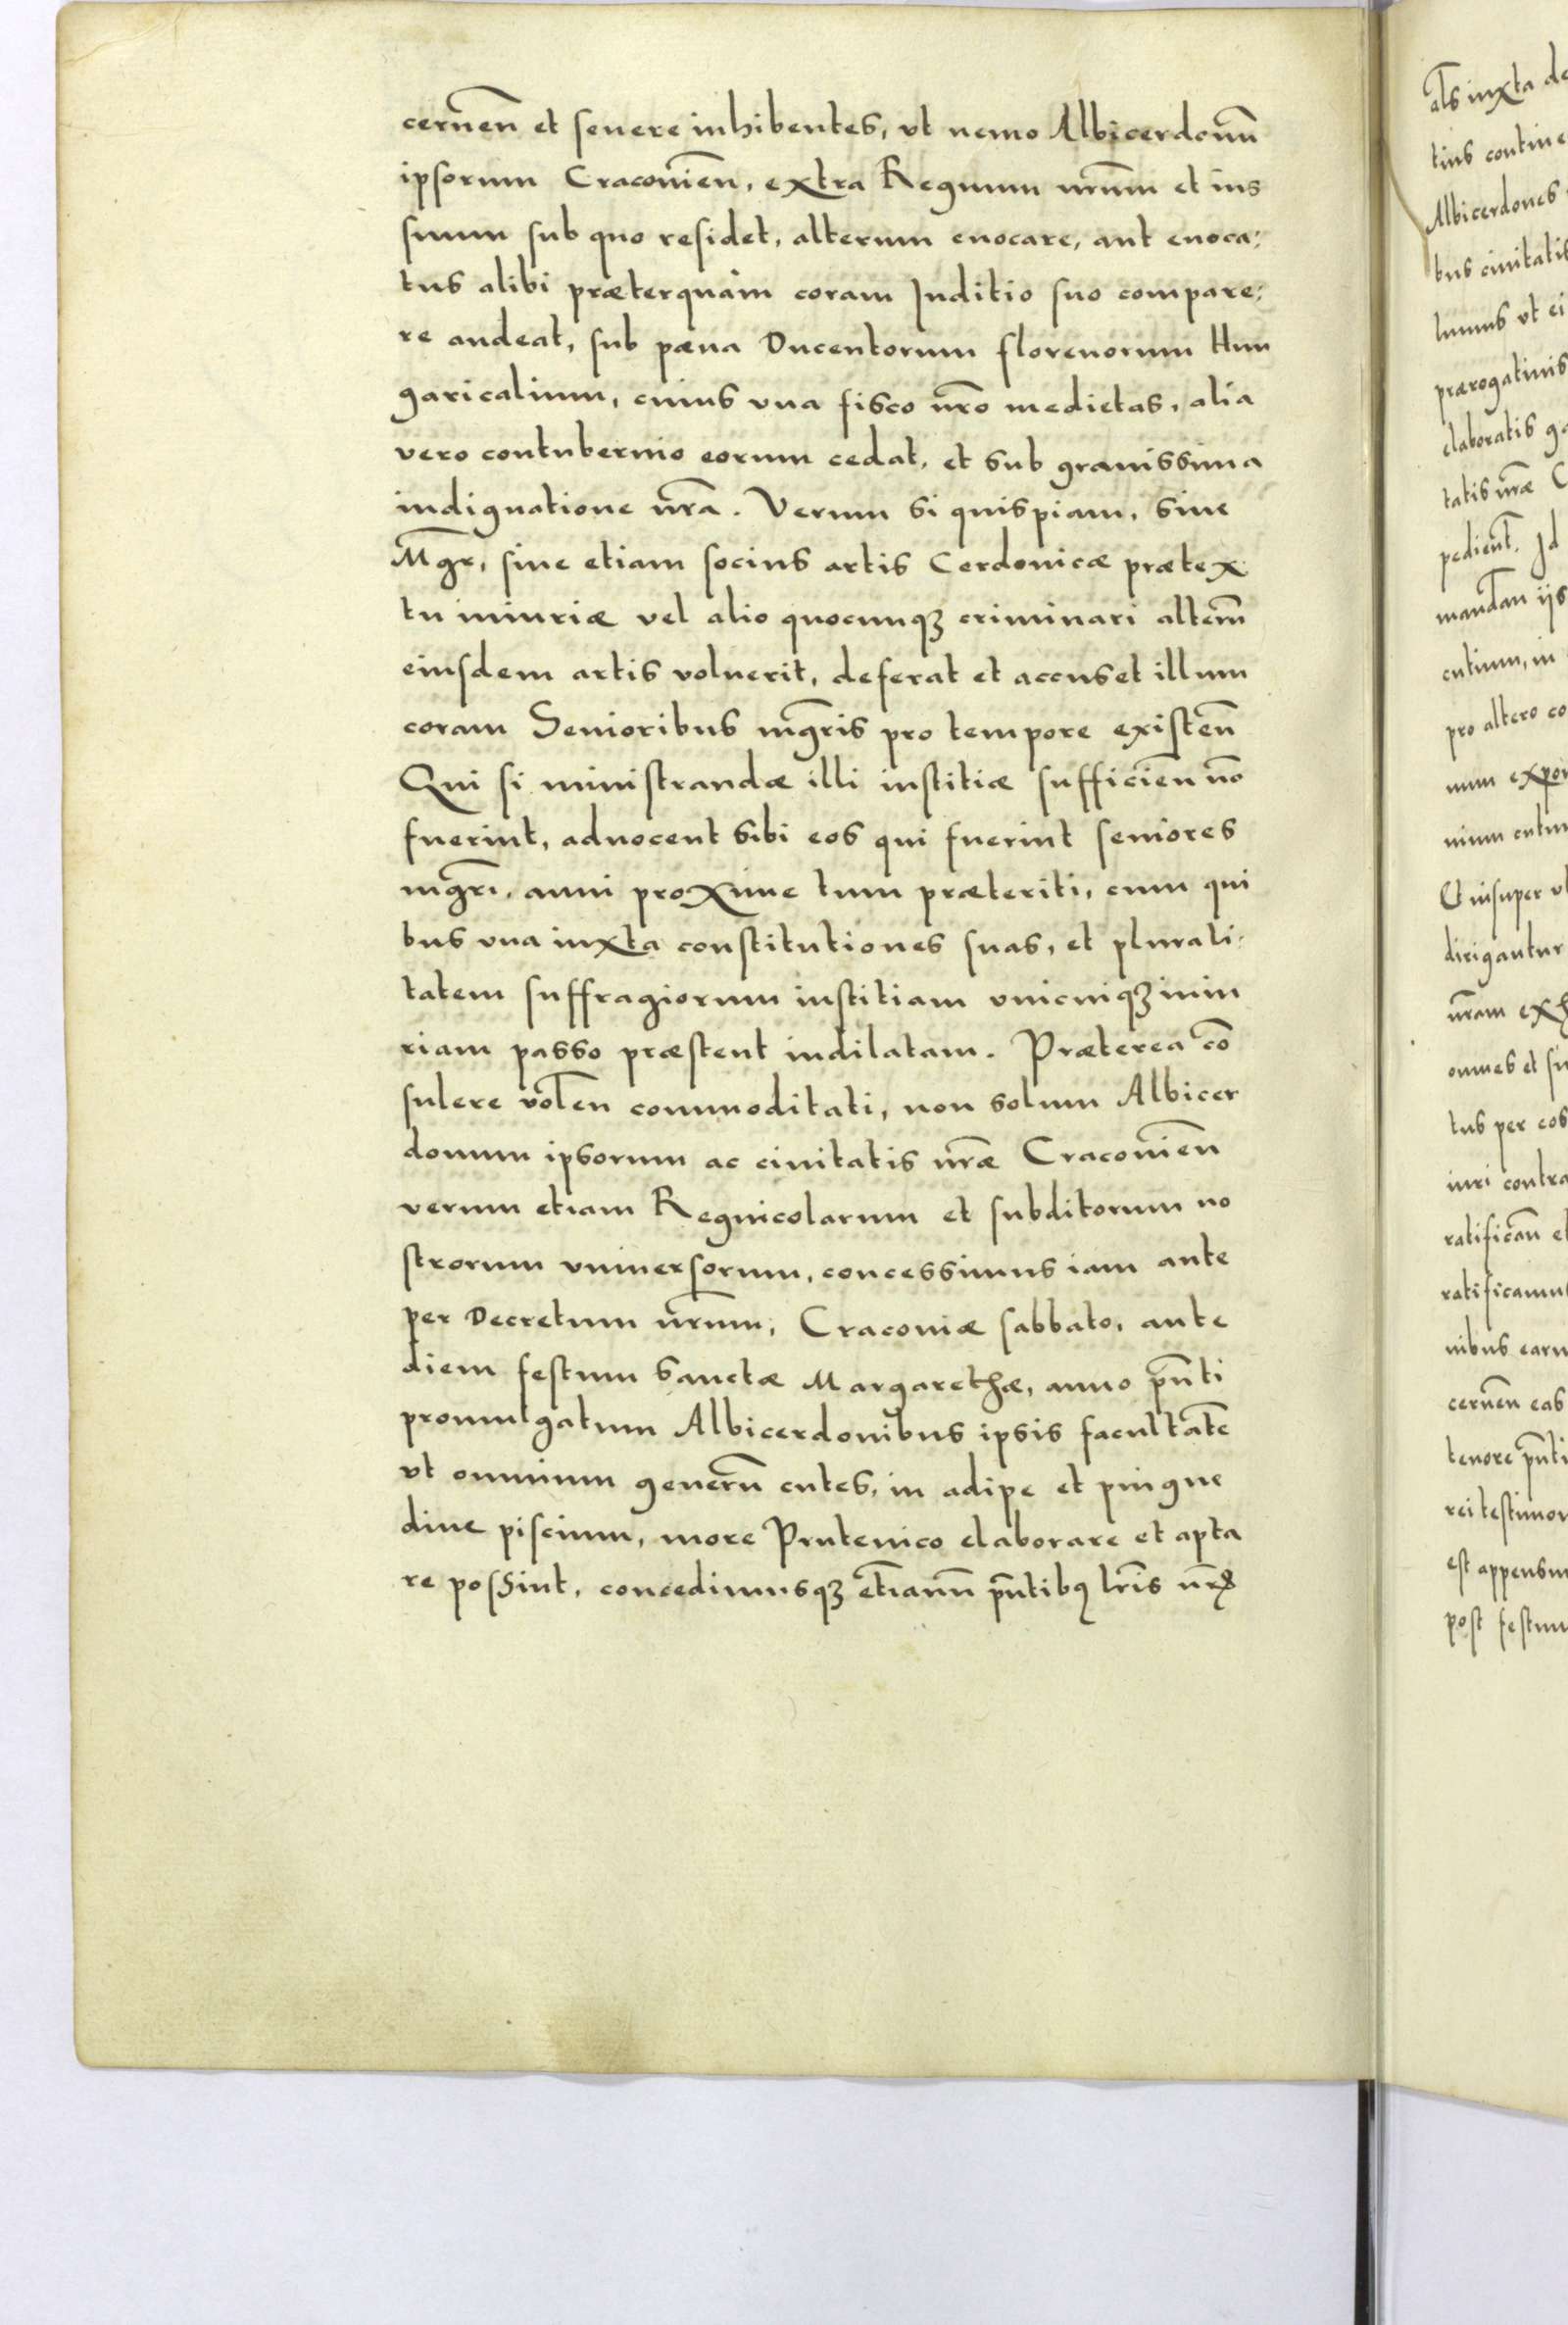 cerneñ et seuere inhibentes, vt nemo Albicerdonũ
ipsorum Cracouieñ, extra Regnum nrũm et ius
suum sub quo residet, alterum euocare, aut euoca:
tus alibi præterquàm coram Iuditio suo compare:
re audeat, sub pæna Ducentorum florenorum Hun
garicalium, cuius vna fisco nr̃o medietas, alia
vero contubernio eorum cedat, et sub grauissima
indignatione nr̃a. Verum si quispiam, siue
Mgr̃, siue etiam socius artis Cerdonicæ prætex
tu iniuriæ vel alio quocunqꝫ criminari alterm̃
eiusdem artis voluerit, deferat et accuset illum
coram Senioribus mgr̃is pro tempore existeñ
Qui si ministrandæ illi iustitiæ sufficieñ nõ
fuerint, aduocent sibi eos qui fuerint seniores
mgr̃i, anni proxime tum præteriti, cum qui
bus vna iuxta constitutiones suas, et plurali:
tatem suffragiorum iustitiam vnicuiqꝫ iniu
riam passo præstent indilatam. Præterea cõ
sulere voleñ commoditati, non solum Albicer
donum ipsorum ac ciuitatis nr̃æ Cracouieñ
verum etiam Regnicolarum et subditorum no
strorum vniuersorum, concessimus iam ante
per Decretum nr̃um, Cracouiæ sabbato, ante
diem festum Sanctæ Margarethæ, anno pñti
promulgatum Albicerdonibus ipsis facultatẽ
vt omnium generũ cutes, in adipe et pingue
dine piscium, more Prutenico elaborare et apta
re possint, concedimusqꝫ etiamñ pñtibꝰ lr̃is nr̃ꝭ
al̃s iuxta de
tius contine
Albicerdones
bus ciuitatis
lumus vt ei
prærogatiuis
elaboratis
tatis nr̃æ C
pedient̃. Id
mandañ iis
cutium, in
pro altero co
num expor
nium cutiu
Et insuper vt
dirigantur
nr̃am exh
omnes et si
tus per eos
iuri contra
ratificañ et
ratificamus
nibus earu
cerneñ eas
tenore pñti
rei testimon
est appensu
post festum